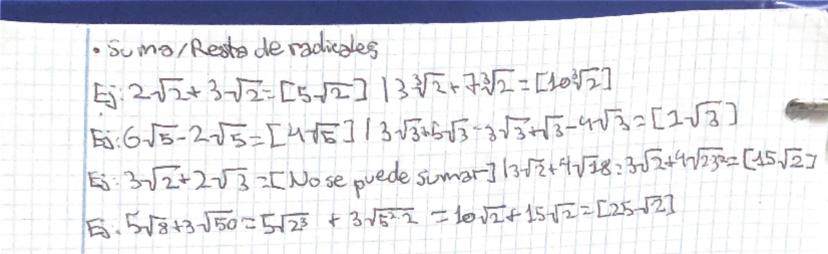 • Suma/Resta de radicales
Ej: 2√2 + 3√2 = [5√2] | 3∛2 + 7∛2 = [10∛2]
Ej: 6√5 - 2√5 = [4√5] | 3√3 + 5√3 - 3√3 + √3 - 4√3 = [2√3]
Ej: 3√2 + 2√3 = [No se puede sumar] | 3√2 + 4√18 = 3√2 + 4√2·3² = [15√2]
Ej: 5√8 + 3√50 = 5√2³ + 3√5²·2 = 10√2 + 15√2 = [25√2]